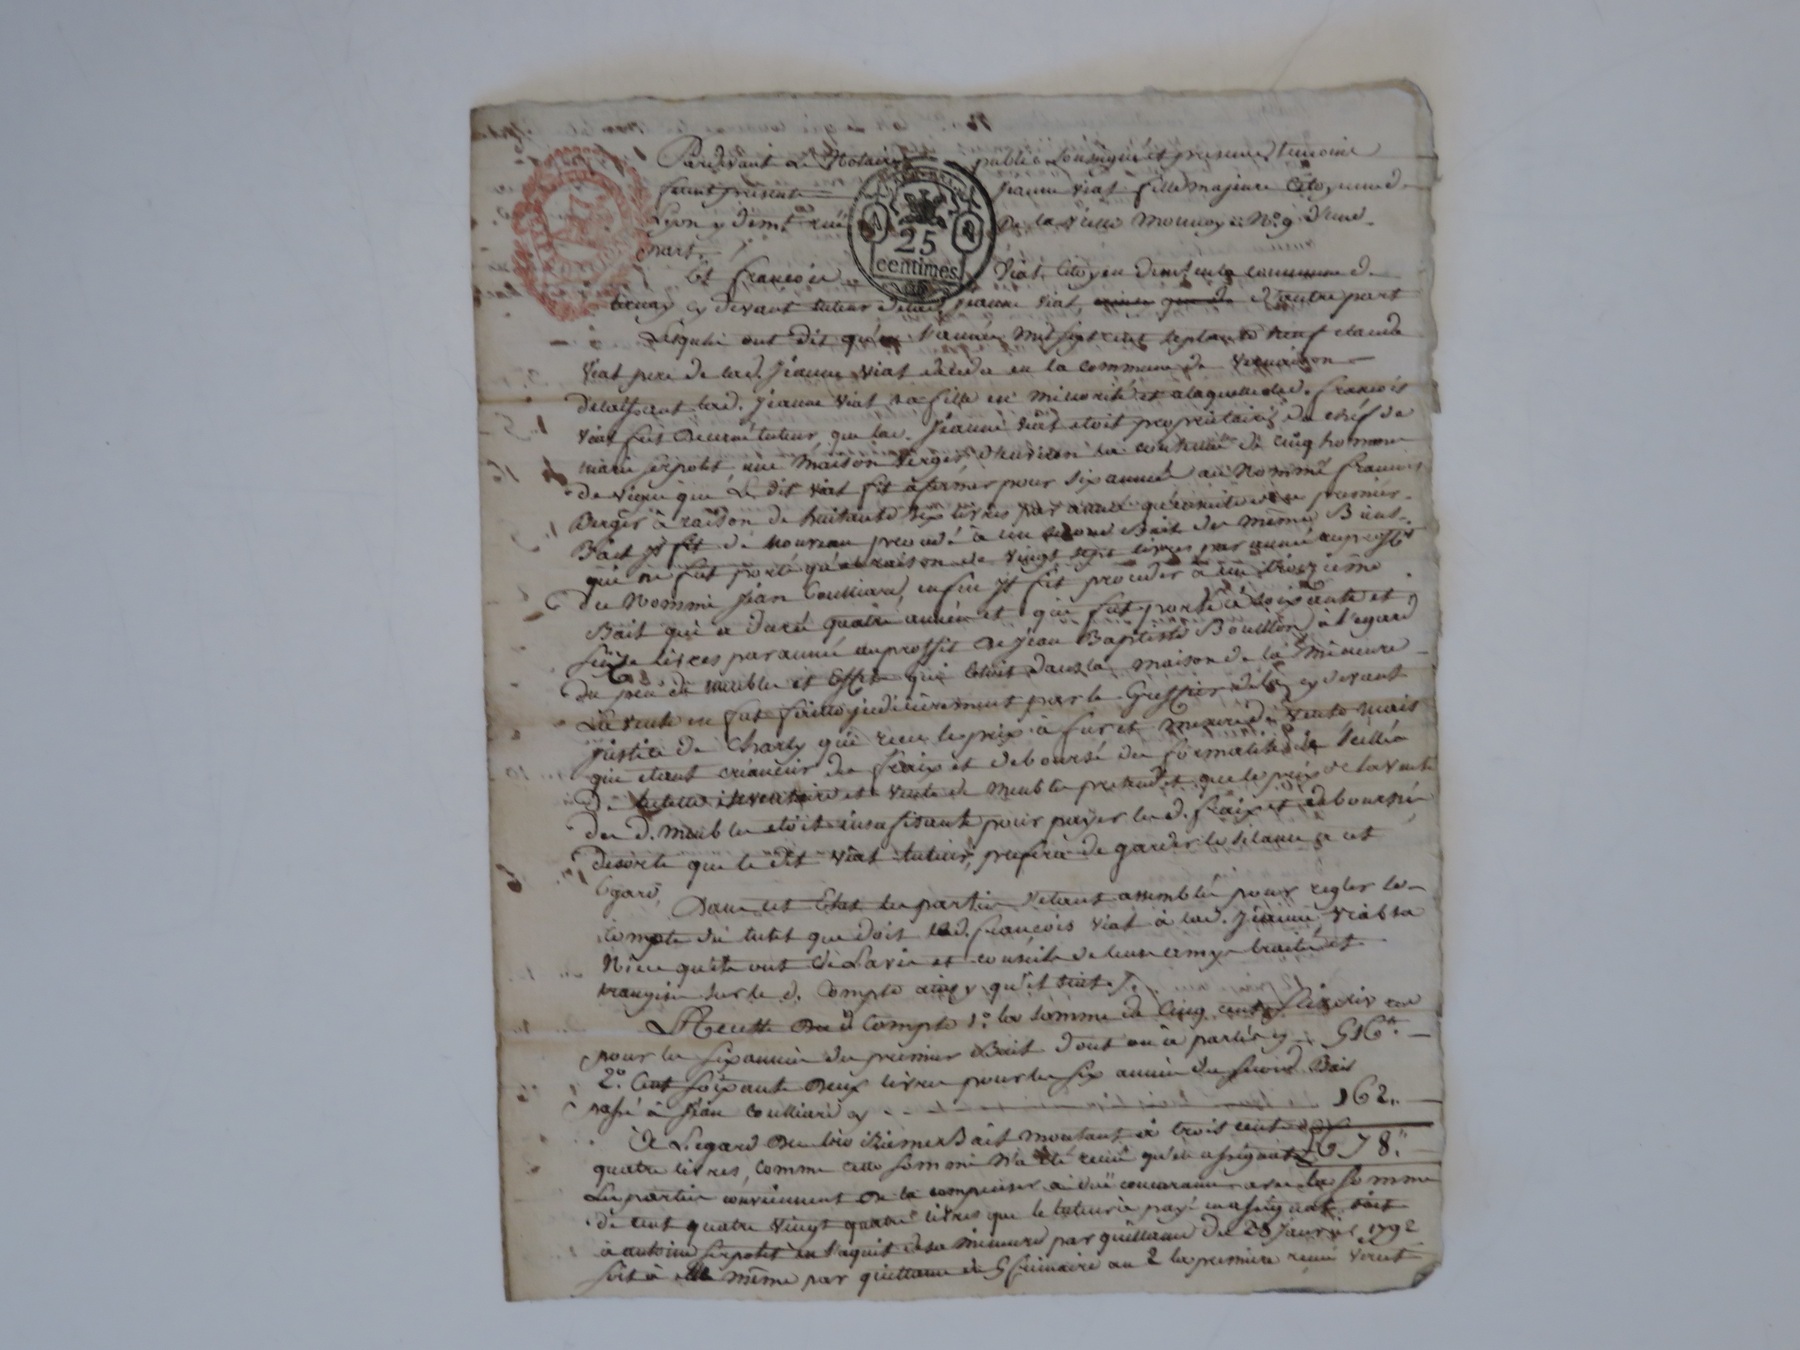 Pardevant Le Notaire public soussigné et presence temoins
furent présents Jeanne Viat fille majeure Citoyenne de
Lyon y demt rue De la Vielle Monnoye No. 9 d'une
part.
25
centimes
Et François Viat Citoyen demt en la commune de
cy devant tuteur de lad. Jeanne Viat, d'autre part
Lesquels ont dit qu'en l'année mil sept cent septante neuf claude
Viat pere de lad. Jeanne Viat deceda en la commune de Vernaison
delaissant lad. Jeanne Viat sa fille en minorité et a laquelle led. François
Viat fut decerné tuteur, que lad. Jeanne Viat etoit propriétaire du chef de
marie serpolet une Maison Verger la contenue de cinq hommée
de vigne que Le dit Viat fit affermer pour six année au Nommé François
Berger à raison de huitante six livres par année qu'ensuite ce premier
Bail il fit de nouveau procédé à un second Bail des même Biens
qui ne fut porté qu'à raison de vingt sept livres par année au proffit
du Nommé Jean Coulliard, enfin il fit proceder à un troizième
Bail qui a duré quatre année et qui fut porté à soixante et
seize livres par année au proffit de Jean Baptiste Bouillon, à l'egard
du peu de meubles et Effets qui etoit dans la maison de la mineure
La vente en fut faitte judiciairement par le Greffier de la cy devant
justice de Charly qui recu le prix à fur et mesure de vente mais
qui etant créancier des fraix et deboursé des formalités de
de tutelle inventaire et vente de meubles pretendit que le prix de la vente
des d. meubles etoit insufisante pour payer les d. fraix et deboursés,
desorte que le dit Viat tuteur, prefera de garder le silance a cet
Egard,
Dans cet Etat les parties s'etant assemblés pour regler le
compte du tutel que doit led. François Viat à lad. Jeanne Viat sa
Niece qu'ils ont de L'avis et conseils de leurs amys traité et
transigé sur le d. Compte ainsy qu'il suit.
Recette du d Compte 1° la somme de Cinq cents seize livres
pour les six année du premier Bail dont on a parlé cy 516"
2° Cent soixante deux livres pour les six année du second Bail
passé à Jean Coulliard cy 162"
678"
A L'egard du troizieme Bail montant à trois cent
quatre livres, comme cette somme n'a été recue qu'en assignats
Les parties conviennent de la compenser a due concurrance avec la somme
de cent quatre vingt quatre livres que le tuteur a payé en assignat soit
à antoine serpolet en l'aquit de sa mineure par quittance du 28 Janvier 1792
soit à elle même par quittance du 5 frimaire an 2 la premiere recue